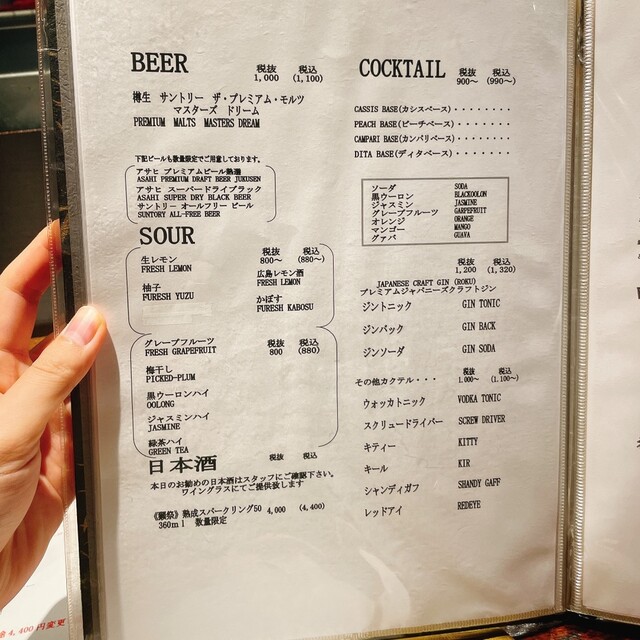 BEER 税抜 税込
1,000 (1,100)
樽生 サントリー ザ・プレミアム・モルツ
マスターズ ドリーム
PREMIUM MALTS MASTERS DREAM
下記ビールも数量限定でご用意しております。
アサヒ プレミアムビール熟撰
ASAHI PREMIUM DRAFT BEER JUKUSEN
アサヒ スーパードライブラック
ASAHI SUPER DRY BLACK BEER
サントリー オールフリー ビール
SUNTORY ALL-FREE BEER
SOUR
税抜 税込
800～ (880～)
生レモン
FRESH LEMON
広島レモン酒
FRESH LEMON
柚子
FURESH YUZU
かぼす
FURESH KABOSU
グレープフルーツ 税抜 税込
FRESH GRAPEFRUIT 800 (880)
梅干し
PICKED-PLUM
黒ウーロンハイ
OOLONG
ジャスミンハイ
JASMINE
緑茶ハイ
GREEN TEA
日本酒 税抜 税込
本日のお勧めの日本酒はスタッフにご確認下さい。
ワイングラスにてご提供致します
《獺祭》熟成スパークリング50 4,000 (4,400)
360ml 数量限定
COCKTAIL 税抜 税込
900～ (990～)
CASSIS BASE(カシスベース)・・・・・・・・
PEACH BASE(ピーチベース)・・・・・・・・
CAMPARI BASE(カンパリベース)・・・・・・・
DITA BASE(ディタベース)・・・・・・・・
ソーダ SODA
黒ウーロン BLACKOOLON
ジャスミン JASMINE
グレープフルーツ GARPEFRUIT
オレンジ ORANGE
マンゴー MANGO
グァバ GUAVA
税抜 税込
1,200 (1,320)
JAPANESE CRAFT GIN (ROKU)
プレミアムジャパニーズクラフトジン
ジントニック GIN TONIC
ジンバック GIN BACK
ジンソーダ GIN SODA
その他カクテル・・・ 税抜 税込
1,000～ (1,100～)
ウォッカトニック VODKA TONIC
スクリュードライバー SCREW DRIVER
キティー KITTY
キール KIR
シャンディガフ SHANDY GAFF
レッドアイ REDEYE
4,400円変更